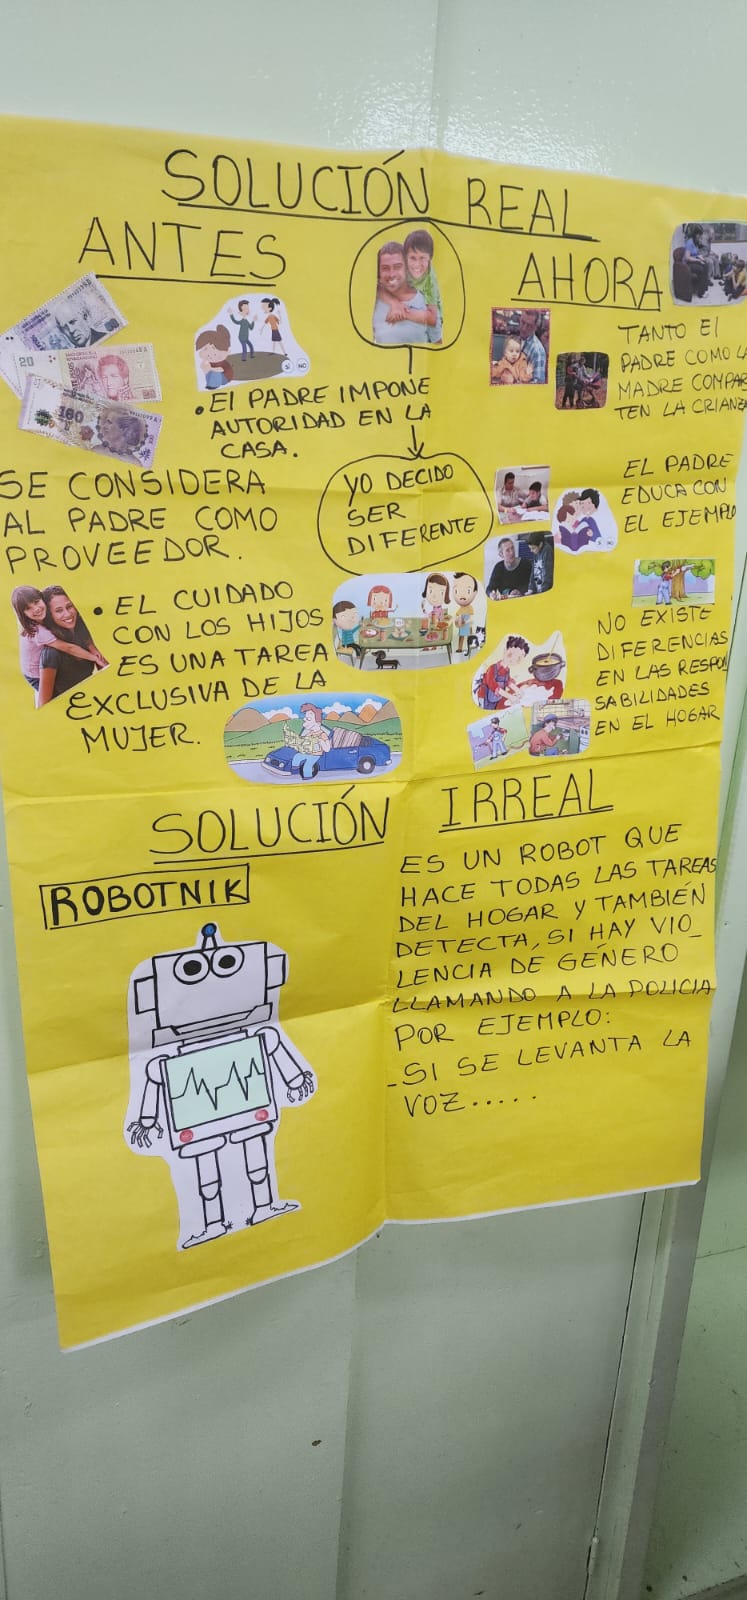 SOLUCIÓN REAL
ANTES
• El PADRE IMPONE
AUTORIDAD EN LA
CASA.
SE CONSIDERA
AL PADRE COMO
PROVEEDOR.
• EL CUIDADO
CON LOS HIJOS
ES UNA TAREA
EXCLUSIVA DE LA
MUJER.
YO DECIDO
SER
DIFERENTE
AHORA
TANTO El
PADRE COMO LA
MADRE COMPAR
TEN LA CRIANZA
EL PADRE
EDUCA CON
EL EJEMPLO
NO EXISTE
DIFERENCIAS
EN LAS RESPON
SABILIDADES
EN EL HOGAR
20
100
SI NO
SOLUCIÓN IRREAL
ROBOTNIK
ES UN ROBOT QUE
HACE TODAS LAS TAREAS
DEL HOGAR Y TAMBIÉN
DETECTA, SI HAY VIO_
LENCIA DE GÉNERO
LLAMANDO A LA POLICIA
POR EJEMPLO:
-SI SE LEVANTA LA
VOZ.....